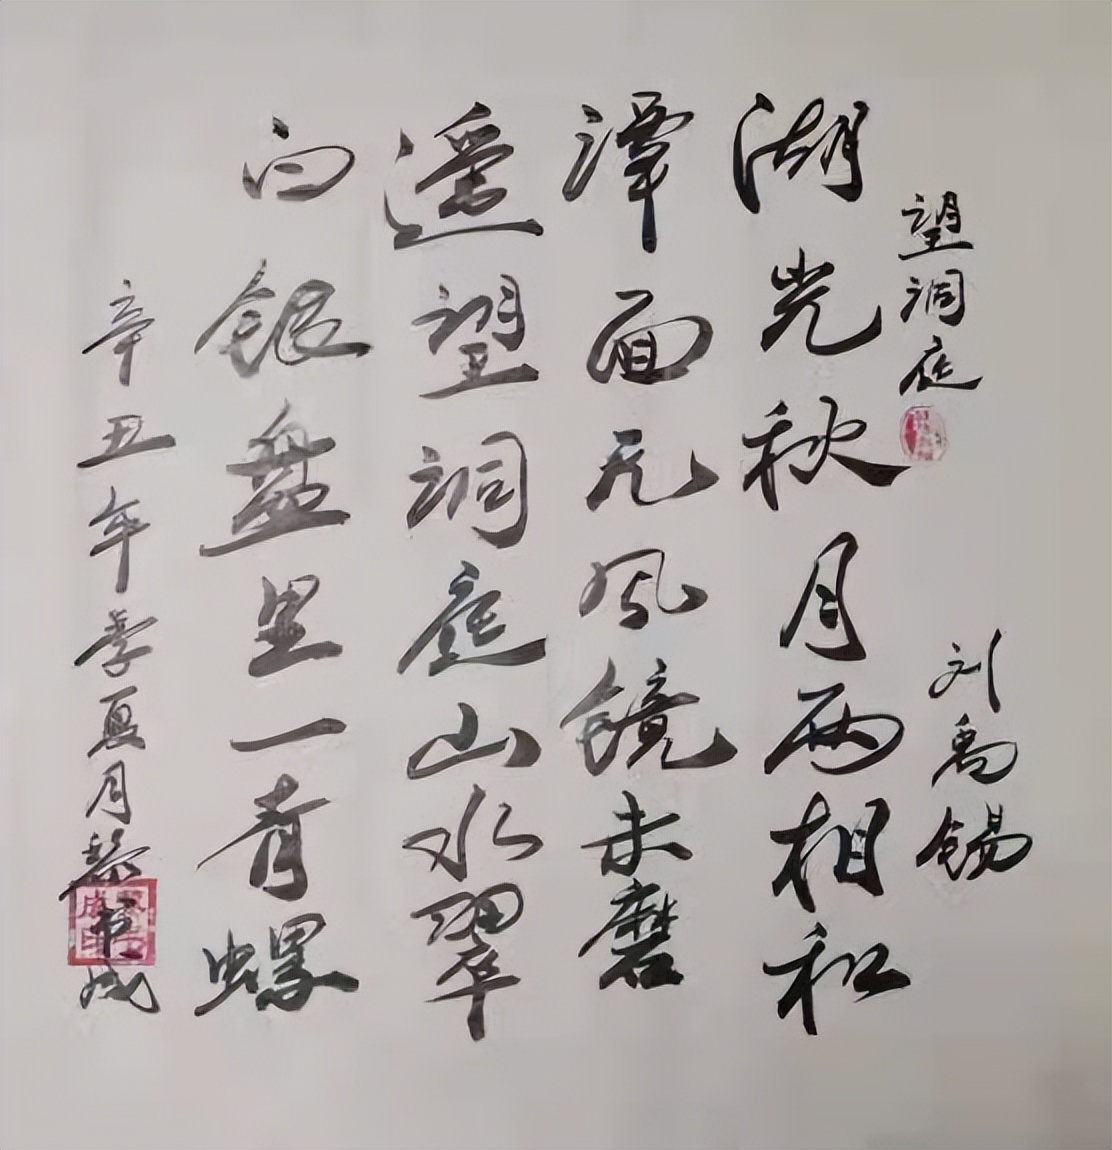 望洞庭
刘禹锡
湖光秋月两相和
潭面无风镜未磨
遥望洞庭山水翠
白银盘里一青螺
辛丑年季夏月黎书成